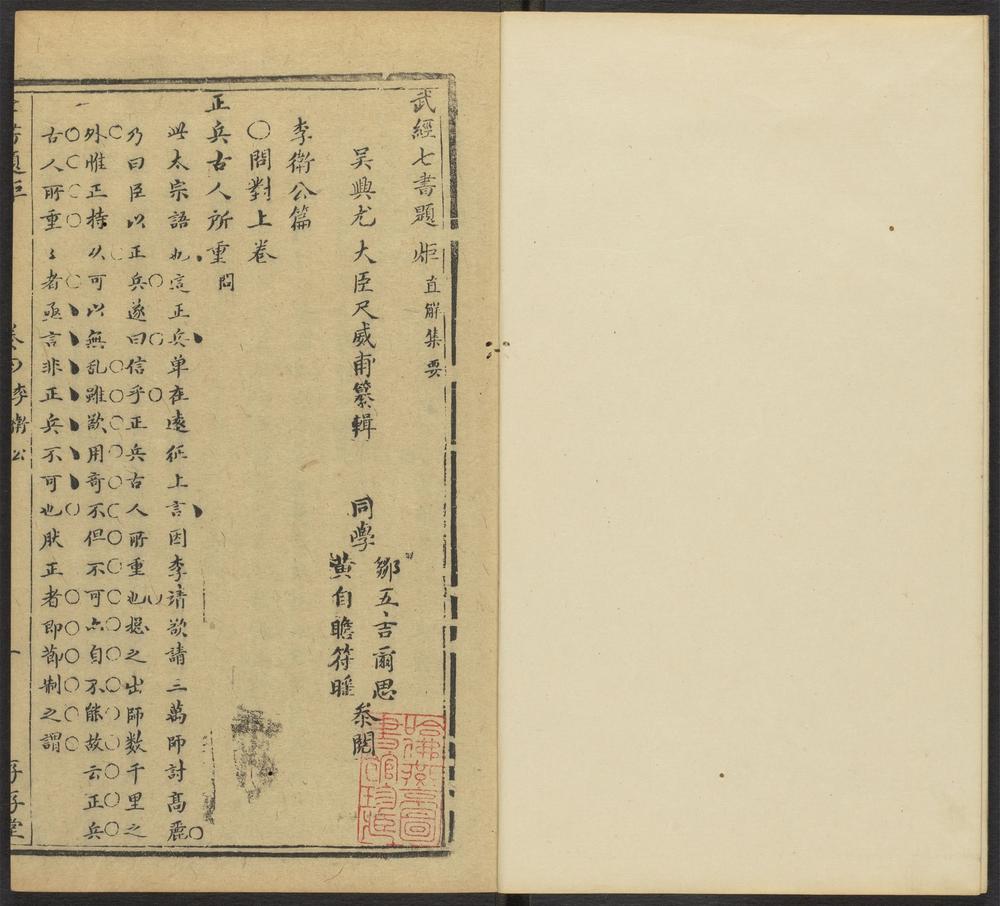 武經七書題炬直解集要
吴興尤大臣尺威甫纂輯
同學
鄒五吉爾思
黄自瞻符暉
叅閱
李衛公篇
〇問對上卷
正兵古人所重問
此太宗語也這正兵单在遠征上言因李靖欲請三萬師討高麗
乃曰臣以正兵遂曰信乎正兵古人所重也揔之出師数千里之
外惟正持以可以無乱雖欲用奇不但不可亦自不能故云正兵
古人所重〻者亟言非正兵不可也肰正者即節制之謂
卷四李衛公
一
哈佛燕京圖書館珍藏